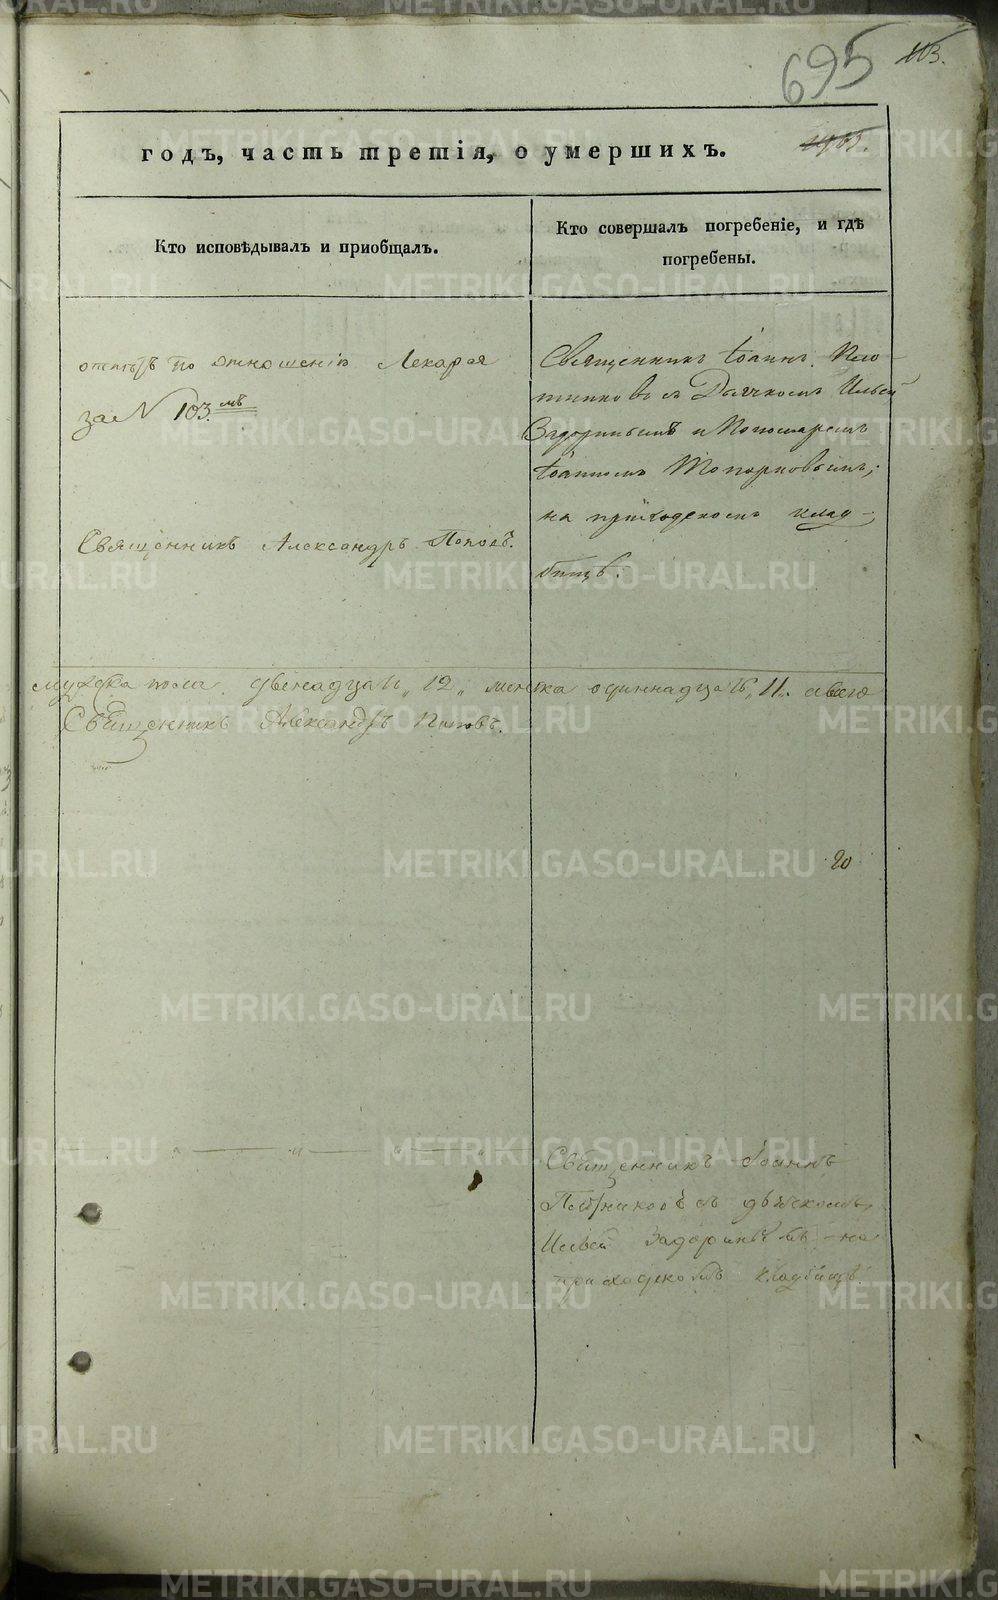 695
113.
годъ, часть третія, о умершихъ.
Кто исповѣдывалъ и приобщалъ.
Кто совершалъ погребеніе, и гдѣ
погребены.
отпѣтъ по отношенію Лекаря
за N 103.мъ
Священникъ Александръ Поповъ.
Священникъ Іоаннъ Пло-
тниковъ съ Дьячкомъ Ильей
Задоринымъ и Пономаремъ
Іоанномъ Топорковымъ;
на приходскомъ клад-
бищѣ.
мужска пола двенадцать "12" женска одиннадцать "11" а всего
Священникъ Александръ Поповъ.
20
Священникъ Іоаннъ
Плотниковъ съ дьячкомъ
Ильей Задоринымъ - на
приходскомъ кладбищѣ.
METRIKI.GASO-URAL.RU